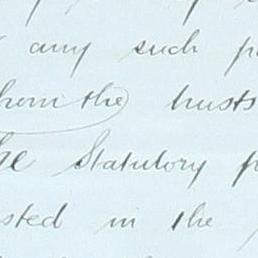 any such
from the trusts
the Statutory
in the